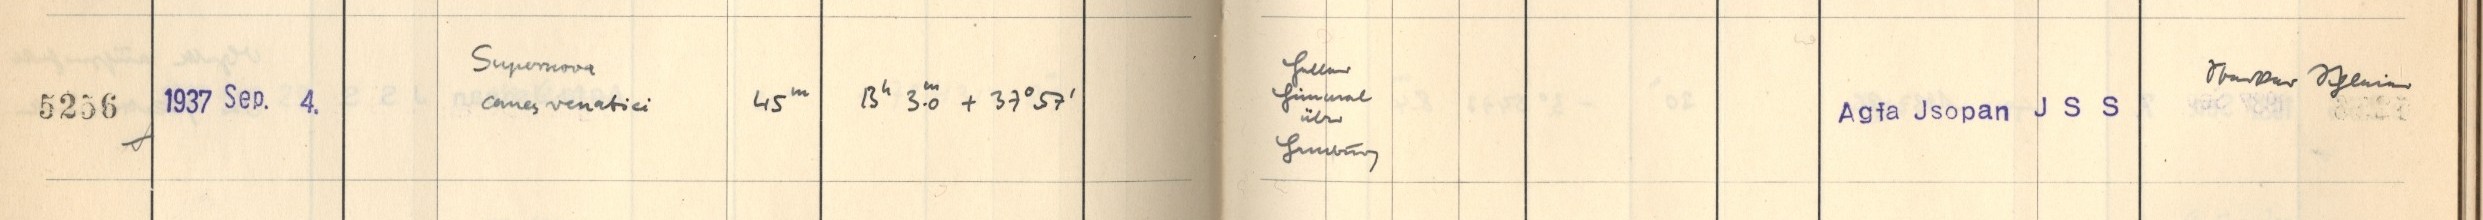 5256
1937 Sep. 4.
Supernova
canes venatici
45ᵐ
13ʰ 3.ᵐ0 + 37°57'
Heller
Himmel
über
Hamburg
Agfa Jsopan J S S